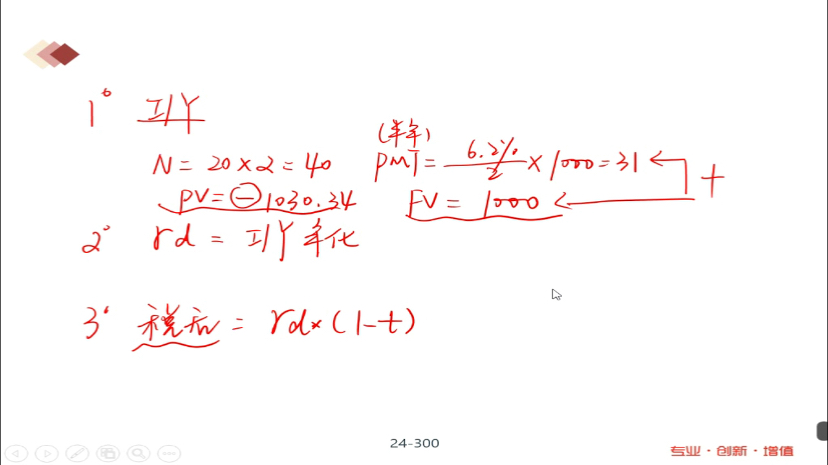 1° I/Y
(半年)
N = 20 × 2 = 40 PMT = 6.2%/2 × 1000 = 31
PV = ⊖1030.34 FV = 1000 +
2° rd = I/Y 年化
3° 税后 = rd × (1-t)
24-300
专业·创新·增值